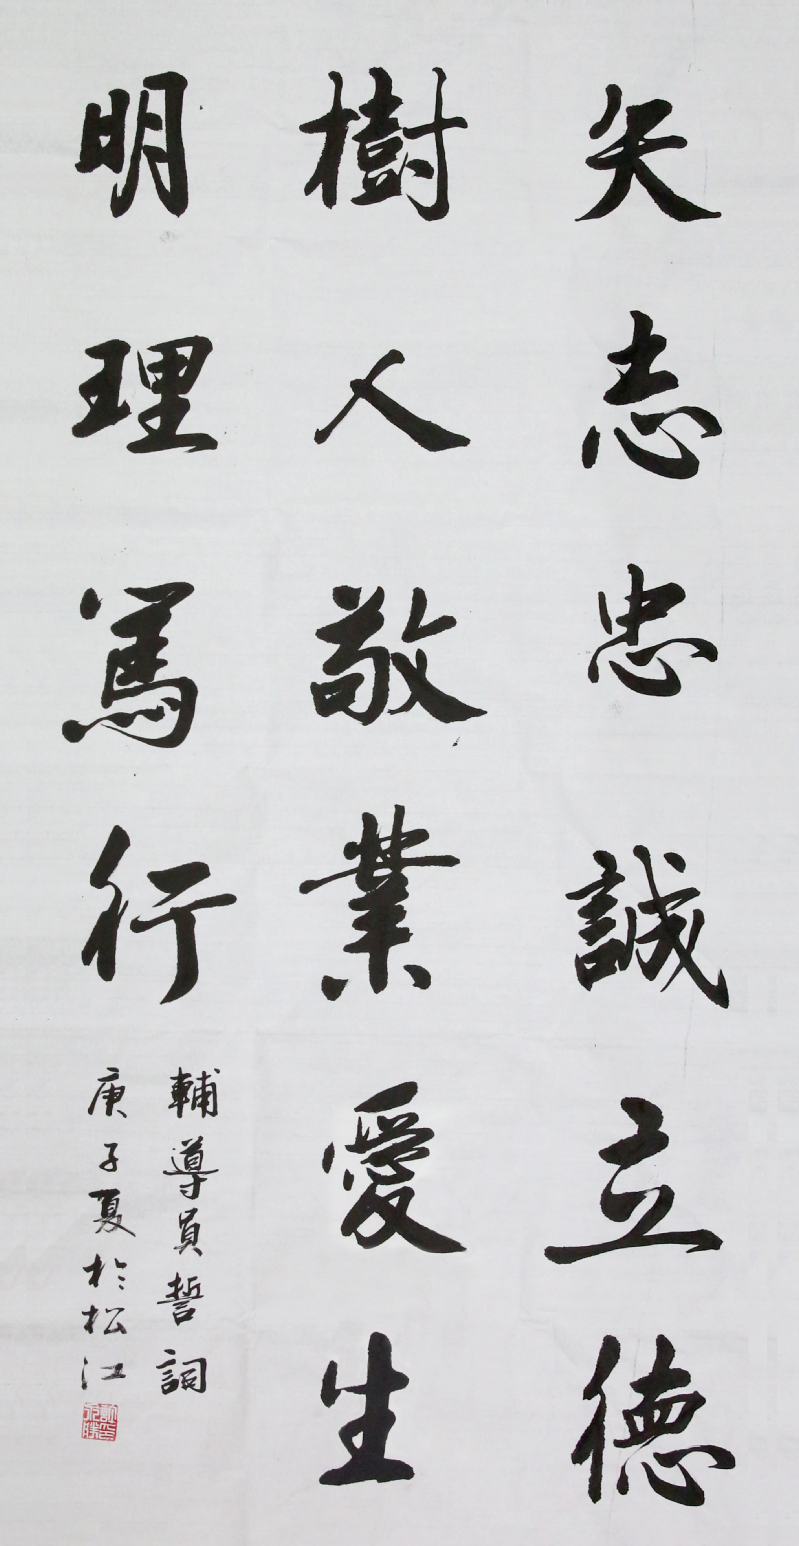 矢志忠誠立德
樹人敬業愛生
明理篤行
輔導員誓詞
庚子夏於松江